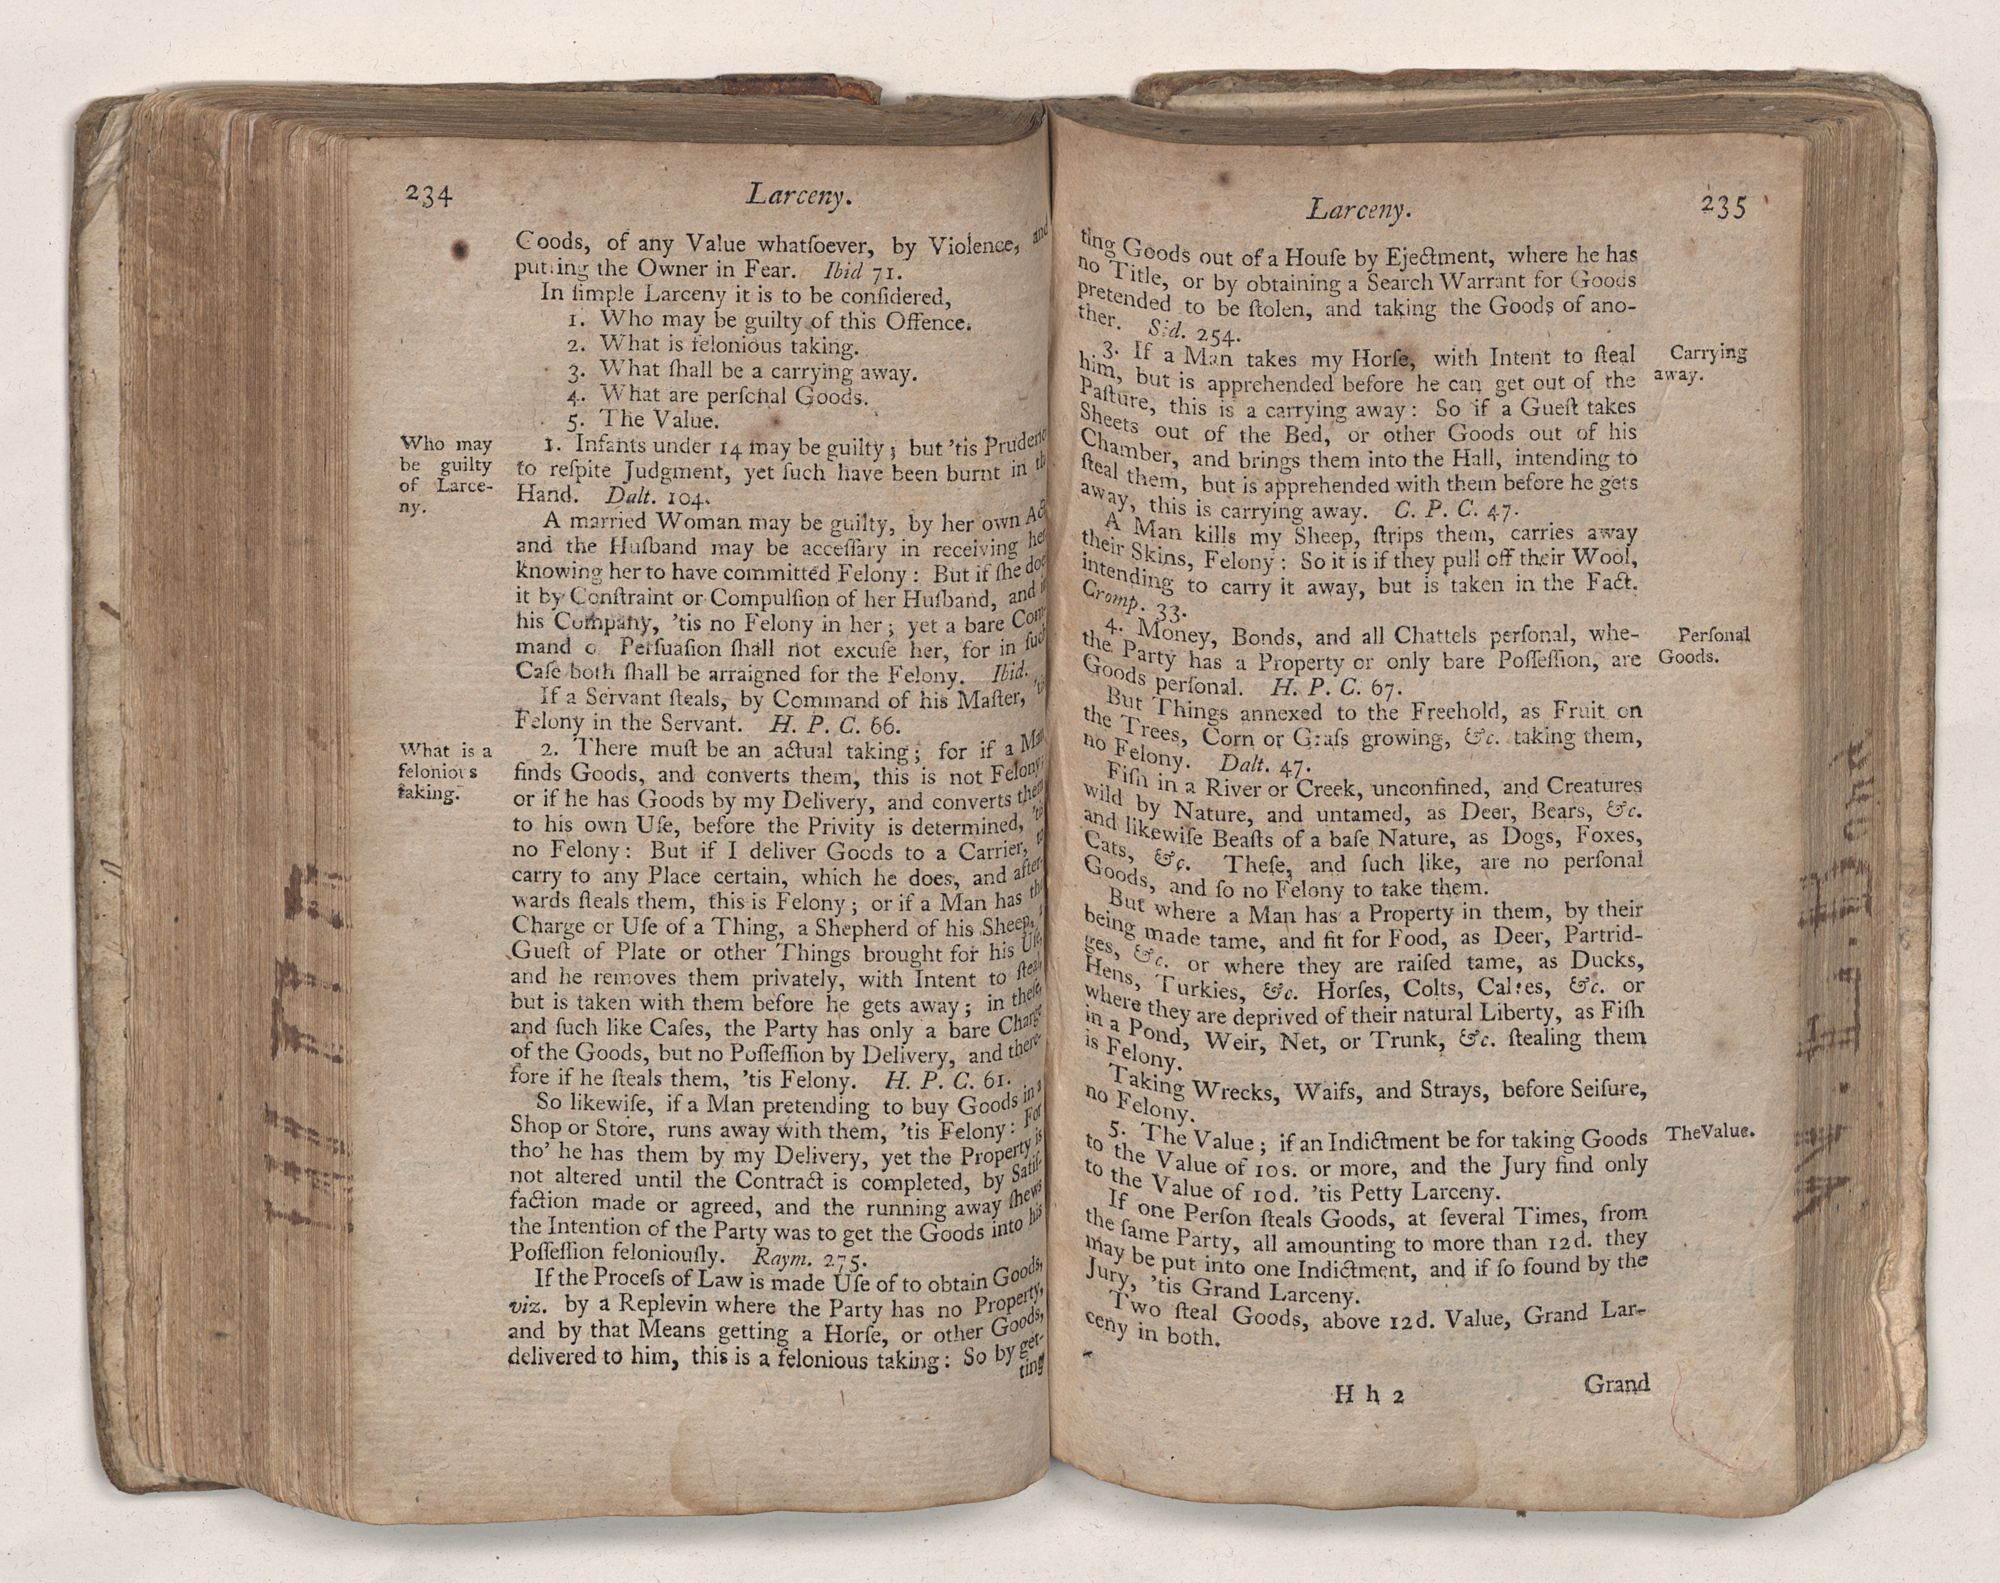 234
Larceny.
Goods, of any Value whatſoever, by Violence, and
putting the Owner in Fear. Ibid 71.
In ſimple Larceny it is to be conſidered,
1. Who may be guilty of this Offence.
2. What is felonious taking.
3. What ſhall be a carrying away.
4. What are perſonal Goods.
5. The Value.
Who may
be guilty
of Larce-
ny.
1. Infants under 14 may be guilty; but 'tis Prudence
to reſpite Judgment, yet ſuch have been burnt in th
Hand. Dalt. 104.
A married Woman may be guilty, by her own Act
and the Huſband may be acceſſary in receiving her
knowing her to have committed Felony: But if ſhe doe
it by Conſtraint or Compulſion of her Huſband, and i
his Company, 'tis no Felony in her; yet a bare Com-
mand o Perſuaſion ſhall not excuſe her, for in ſuch
Caſe both ſhall be arraigned for the Felony. Ibid.
If a Servant ſteals, by Command of his Maſter, 'ti
Felony in the Servant. H. P. C. 66.
What is a
felonious
taking.
2. There muſt be an actual taking; for if a Man
finds Goods, and converts them, this is not Felony;
or if he has Goods by my Delivery, and converts them
to his own Uſe, before the Privity is determined, 'tis
no Felony: But if I deliver Goods to a Carrier, to
carry to any Place certain, which he does, and after-
wards ſteals them, this is Felony; or if a Man has the
Charge or Uſe of a Thing, a Shepherd of his Sheep,
Gueſt of Plate or other Things brought for his Uſe,
and he removes them privately, with Intent to ſteal
but is taken with them before he gets away; in theſe,
and ſuch like Caſes, the Party has only a bare Charge
of the Goods, but no Poſſeſſion by Delivery, and there-
fore if he ſteals them, 'tis Felony. H. P. C. 61.
So likewiſe, if a Man pretending to buy Goods in a
Shop or Store, runs away with them, 'tis Felony: For
tho' he has them by my Delivery, yet the Property is
not altered until the Contract is completed, by Satiſ-
faction made or agreed, and the running away ſhews
the Intention of the Party was to get the Goods into his
Poſſeſſion feloniouſly. Raym. 275.
If the Proceſs of Law is made Uſe of to obtain Goods,
viz. by a Replevin where the Party has no Property,
and by that Means getting a Horſe, or other Goods,
delivered to him, this is a felonious taking: So by get-
ting
Larceny.
235
ting Goods out of a Houſe by Ejectment, where he has
no Title, or by obtaining a Search Warrant for Goods
pretended to be ſtolen, and taking the Goods of ano-
ther. Sid. 254.
3. If a Man takes my Horſe, with Intent to ſteal
him, but is apprehended before he can get out of the
Paſture, this is a carrying away: So if a Gueſt takes
Sheets out of the Bed, or other Goods out of his
Chamber, and brings them into the Hall, intending to
ſteal them, but is apprehended with them before he gets
away, this is carrying away. C. P. C. 47.
Carrying
away.
A Man kills my Sheep, ſtrips them, carries away
their Skins, Felony: So it is if they pull off their Wool,
intending to carry it away, but is taken in the Fact.
Cromp. 33.
4. Money, Bonds, and all Chattels perſonal, whe-
the Party has a Property or only bare Poſſeſſion, are
Goods perſonal. H. P. C. 67.
Perſonal
Goods.
But Things annexed to the Freehold, as Fruit on
the Trees, Corn or Graſs growing, &c. taking them,
no Felony. Dalt. 47.
Fiſh in a River or Creek, unconfined, and Creatures
wild by Nature, and untamed, as Deer, Bears, &c.
and likewiſe Beaſts of a baſe Nature, as Dogs, Foxes,
Cats, &c. Theſe, and ſuch like, are no perſonal
Goods, and ſo no Felony to take them.
But where a Man has a Property in them, by their
being made tame, and fit for Food, as Deer, Partrid-
ges, &c. or where they are raiſed tame, as Ducks,
Hens, Turkies, &c. Horſes, Colts, Calves, &c. or
where they are deprived of their natural Liberty, as Fiſh
in a Pond, Weir, Net, or Trunk, &c. ſtealing them
is Felony.
Taking Wrecks, Waifs, and Strays, before Seiſure,
no Felony.
5. The Value; if an Indictment be for taking Goods
to the Value of 10s. or more, and the Jury find only
to the Value of 10d. 'tis Petty Larceny.
The Value.
If one Perſon ſteals Goods, at ſeveral Times, from
the ſame Party, all amounting to more than 12d. they
may be put into one Indictment, and if ſo found by the
Jury, 'tis Grand Larceny.
Two ſteal Goods, above 12d. Value, Grand Lar-
ceny in both.
H h 2
Grand